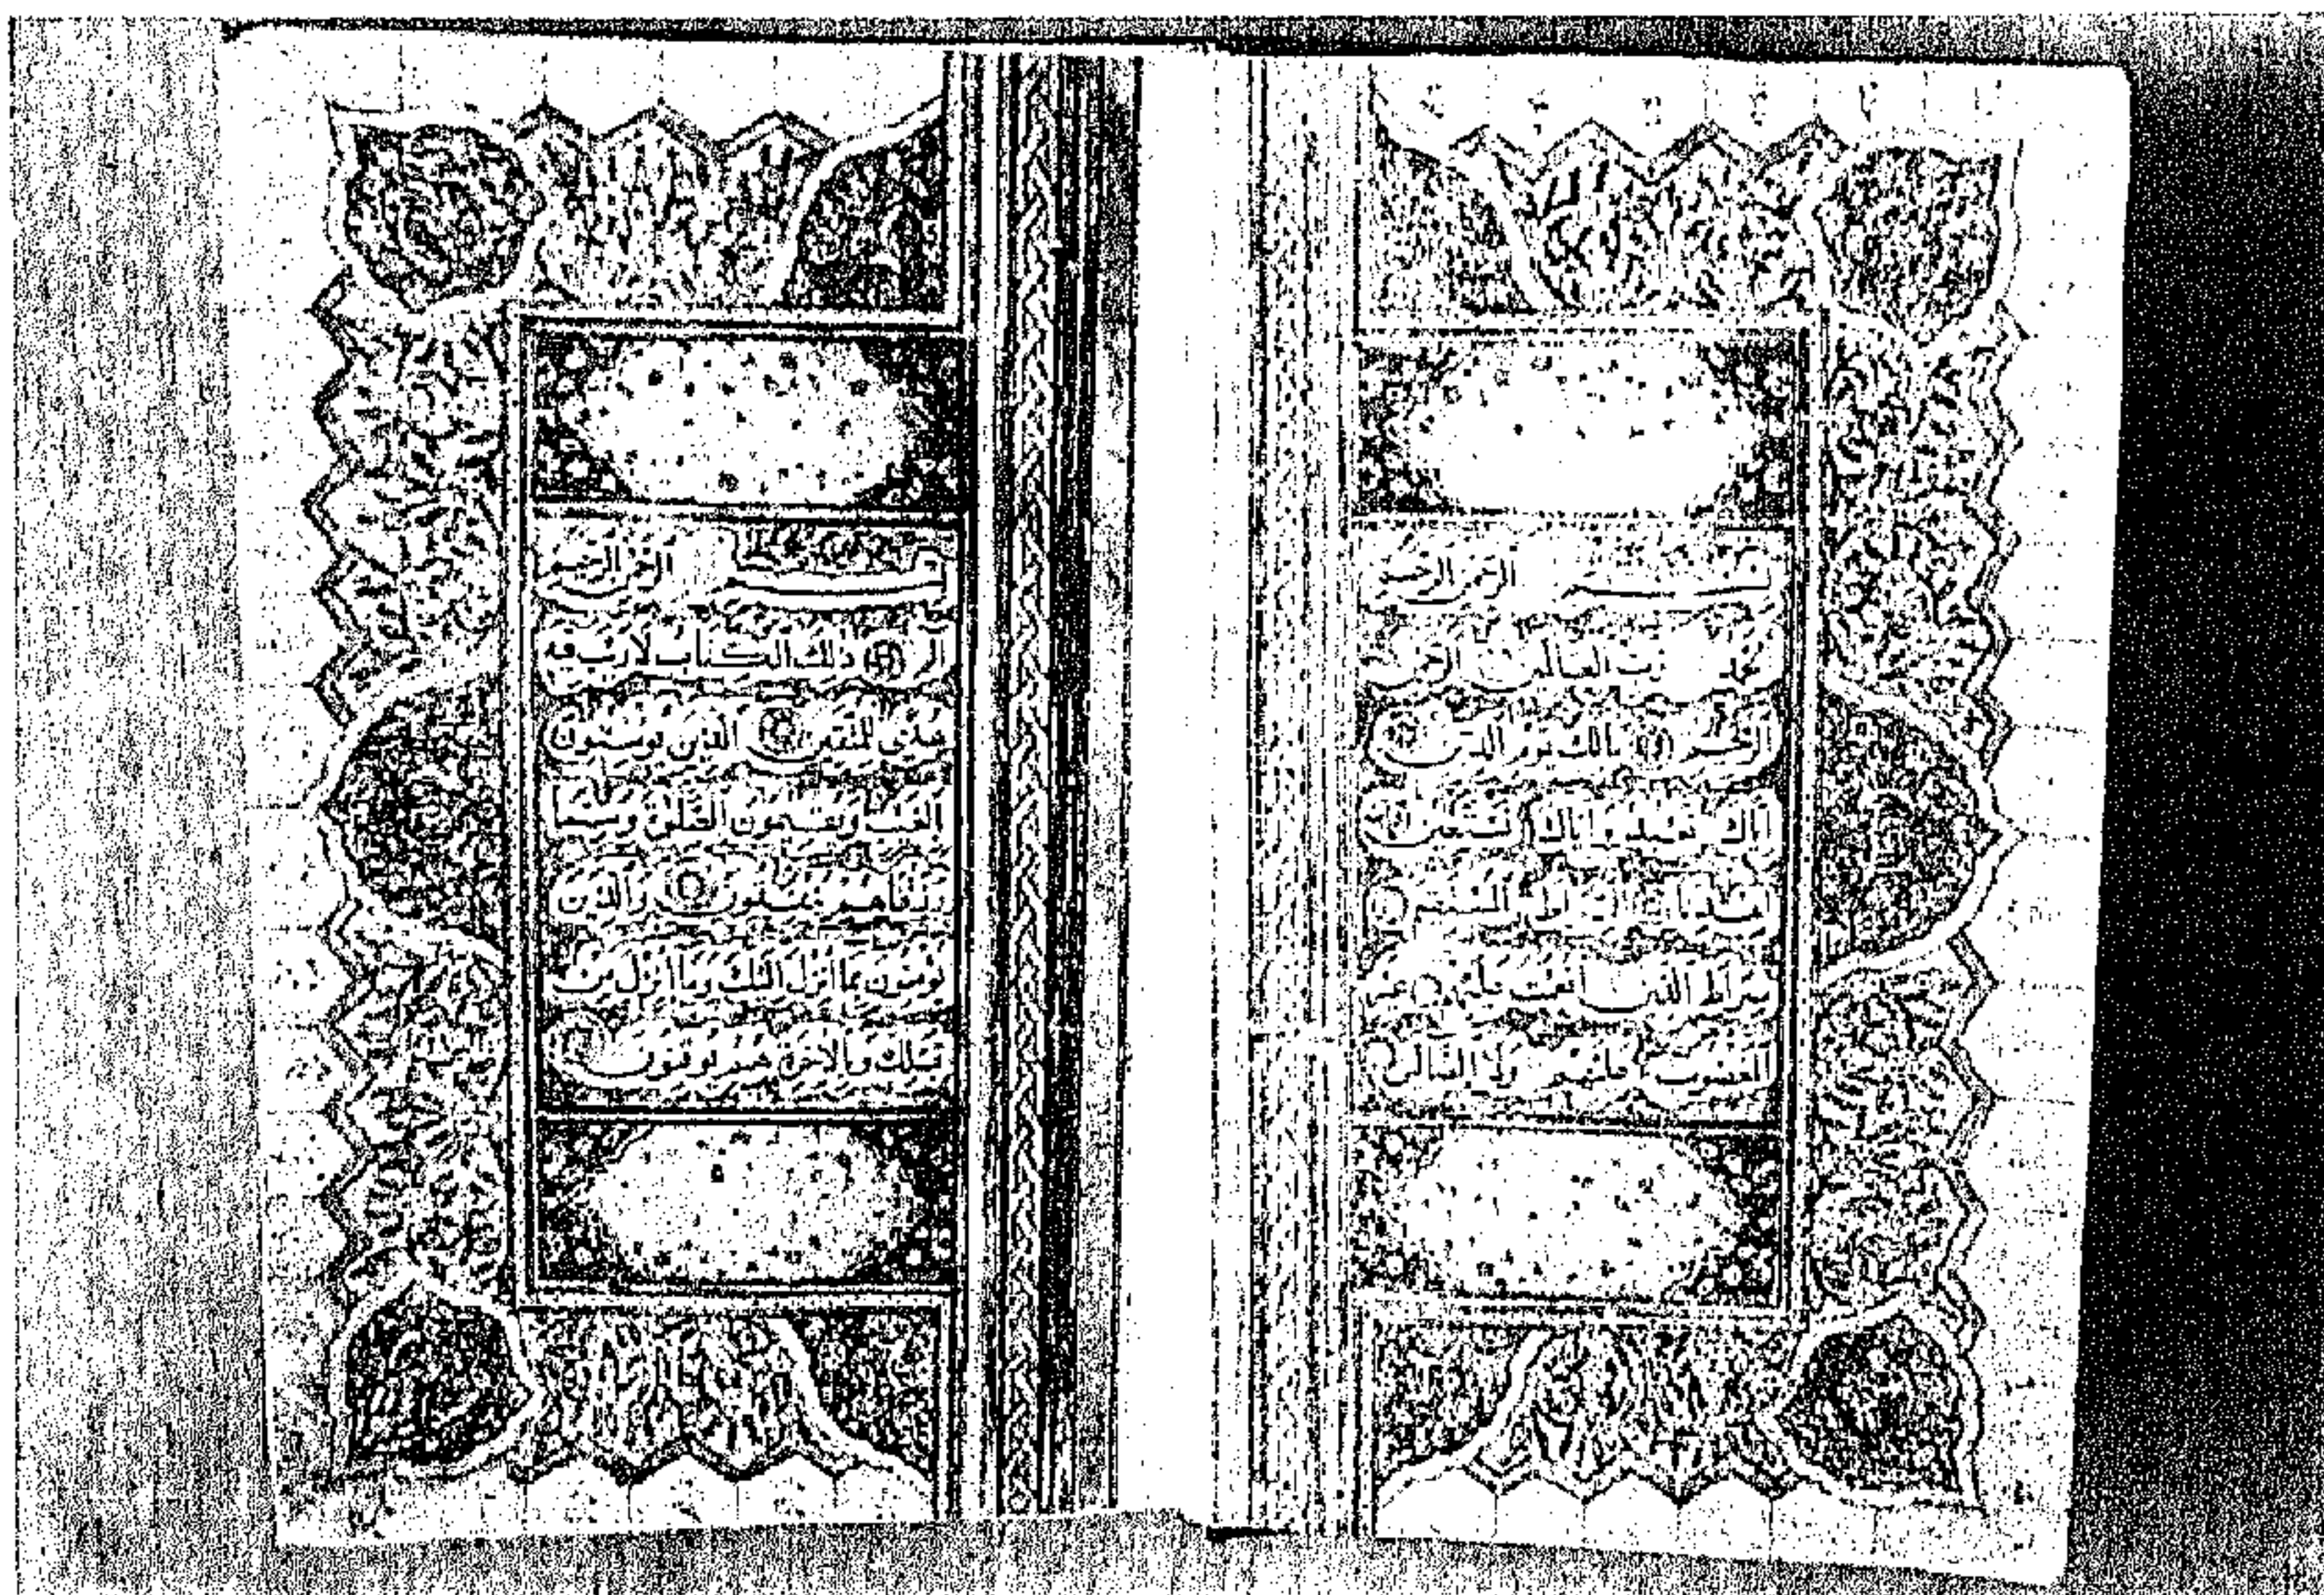 بسم الله الرحمن الرحيم
الحمد لله رب العالمين الرحمن
الرحيم مالك يوم الدين
اياك نعبد واياك نستعين
اهدنا الصراط المستقيم
صراط الذين انعمت عليهم غير
المغضوب عليهم ولا الضالين
بسم الله الرحمن الرحيم
الم ذلك الكتاب لا ريب فيه
هدى للمتقين الذين يؤمنون
بالغيب ويقيمون الصلوة ومما
رزقناهم ينفقون والذين
يؤمنون بما انزل اليك وما انزل من
قبلك وبالاخرة هم يوقنون